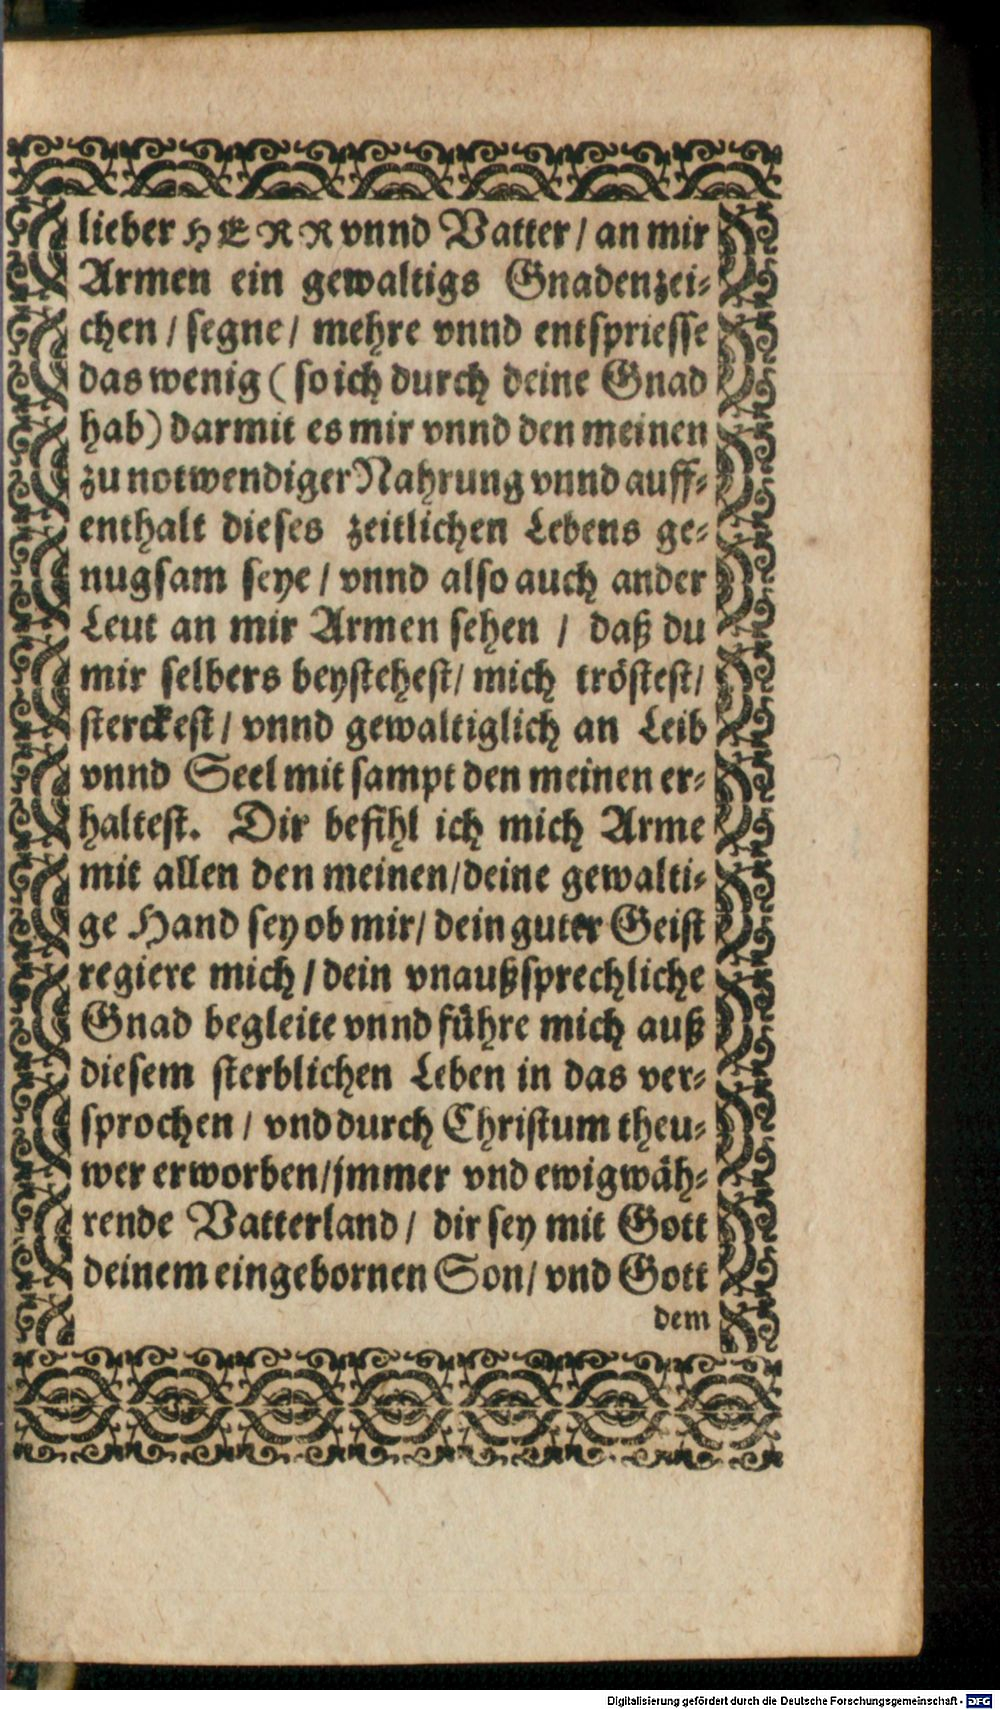 lieber HERR vnnd Vatter / an mir
Armen ein gewaltigs Gnadenzei⸗
chen / segne / mehre vnnd entspriesse
das wenig ( so ich durch deine Gnad
hab) darmit es mir vnnd den meinen
zu notwendiger Nahrung vnnd auff⸗
enthalt dieses zeitlichen Lebens ge⸗
nugsam seye / vnnd also auch ander
Leut an mir Armen sehen / daß du
mir selbers beystehest / mich tröstest /
sterckest / vnnd gewaltiglich an Leib
vnnd Seel mit sampt den meinen er⸗
haltest. Dir befihl ich mich Arme
mit allen den meinen / deine gewalti⸗
ge Hand sey ob mir / dein guter Geist
regiere mich / dein vnaußsprechliche
Gnad begleite vnnd führe mich auß
diesem sterblichen Leben in das ver⸗
sprochen / vnd durch Christum theu⸗
wer erworben / jmmer vnd ewigwäh⸗
rende Vatterland / dir sey mit Gott
deinem eingebornen Son / vnd Gott
dem
Digitalisierung gefördert durch die Deutsche Forschungsgemeinschaft - DFG